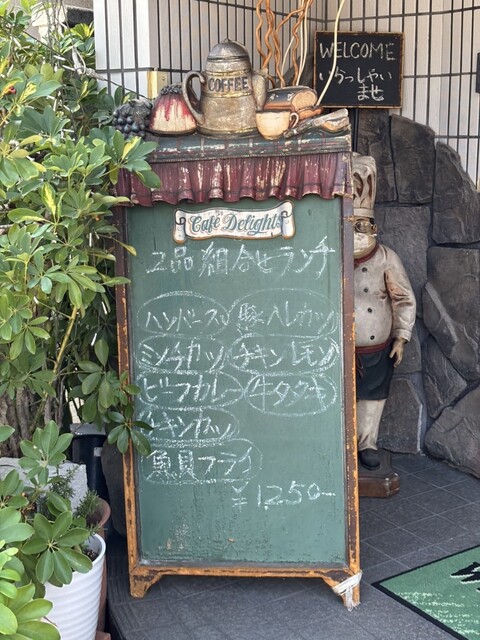 WELCOME
いらっしゃい
ませ
COFFEE
Café Delights
2品組合せランチ
ハンバーグ 豚ヘレカツ
ミンチカツ チキンレモン
ビーフカレー 牛タタキ
チキンカツ
魚貝フライ
¥1,250-